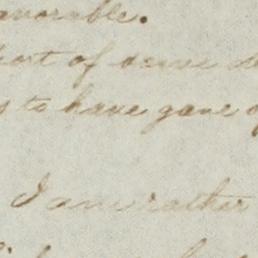 avorable.
ort of dense
s to have gone o
I am rather